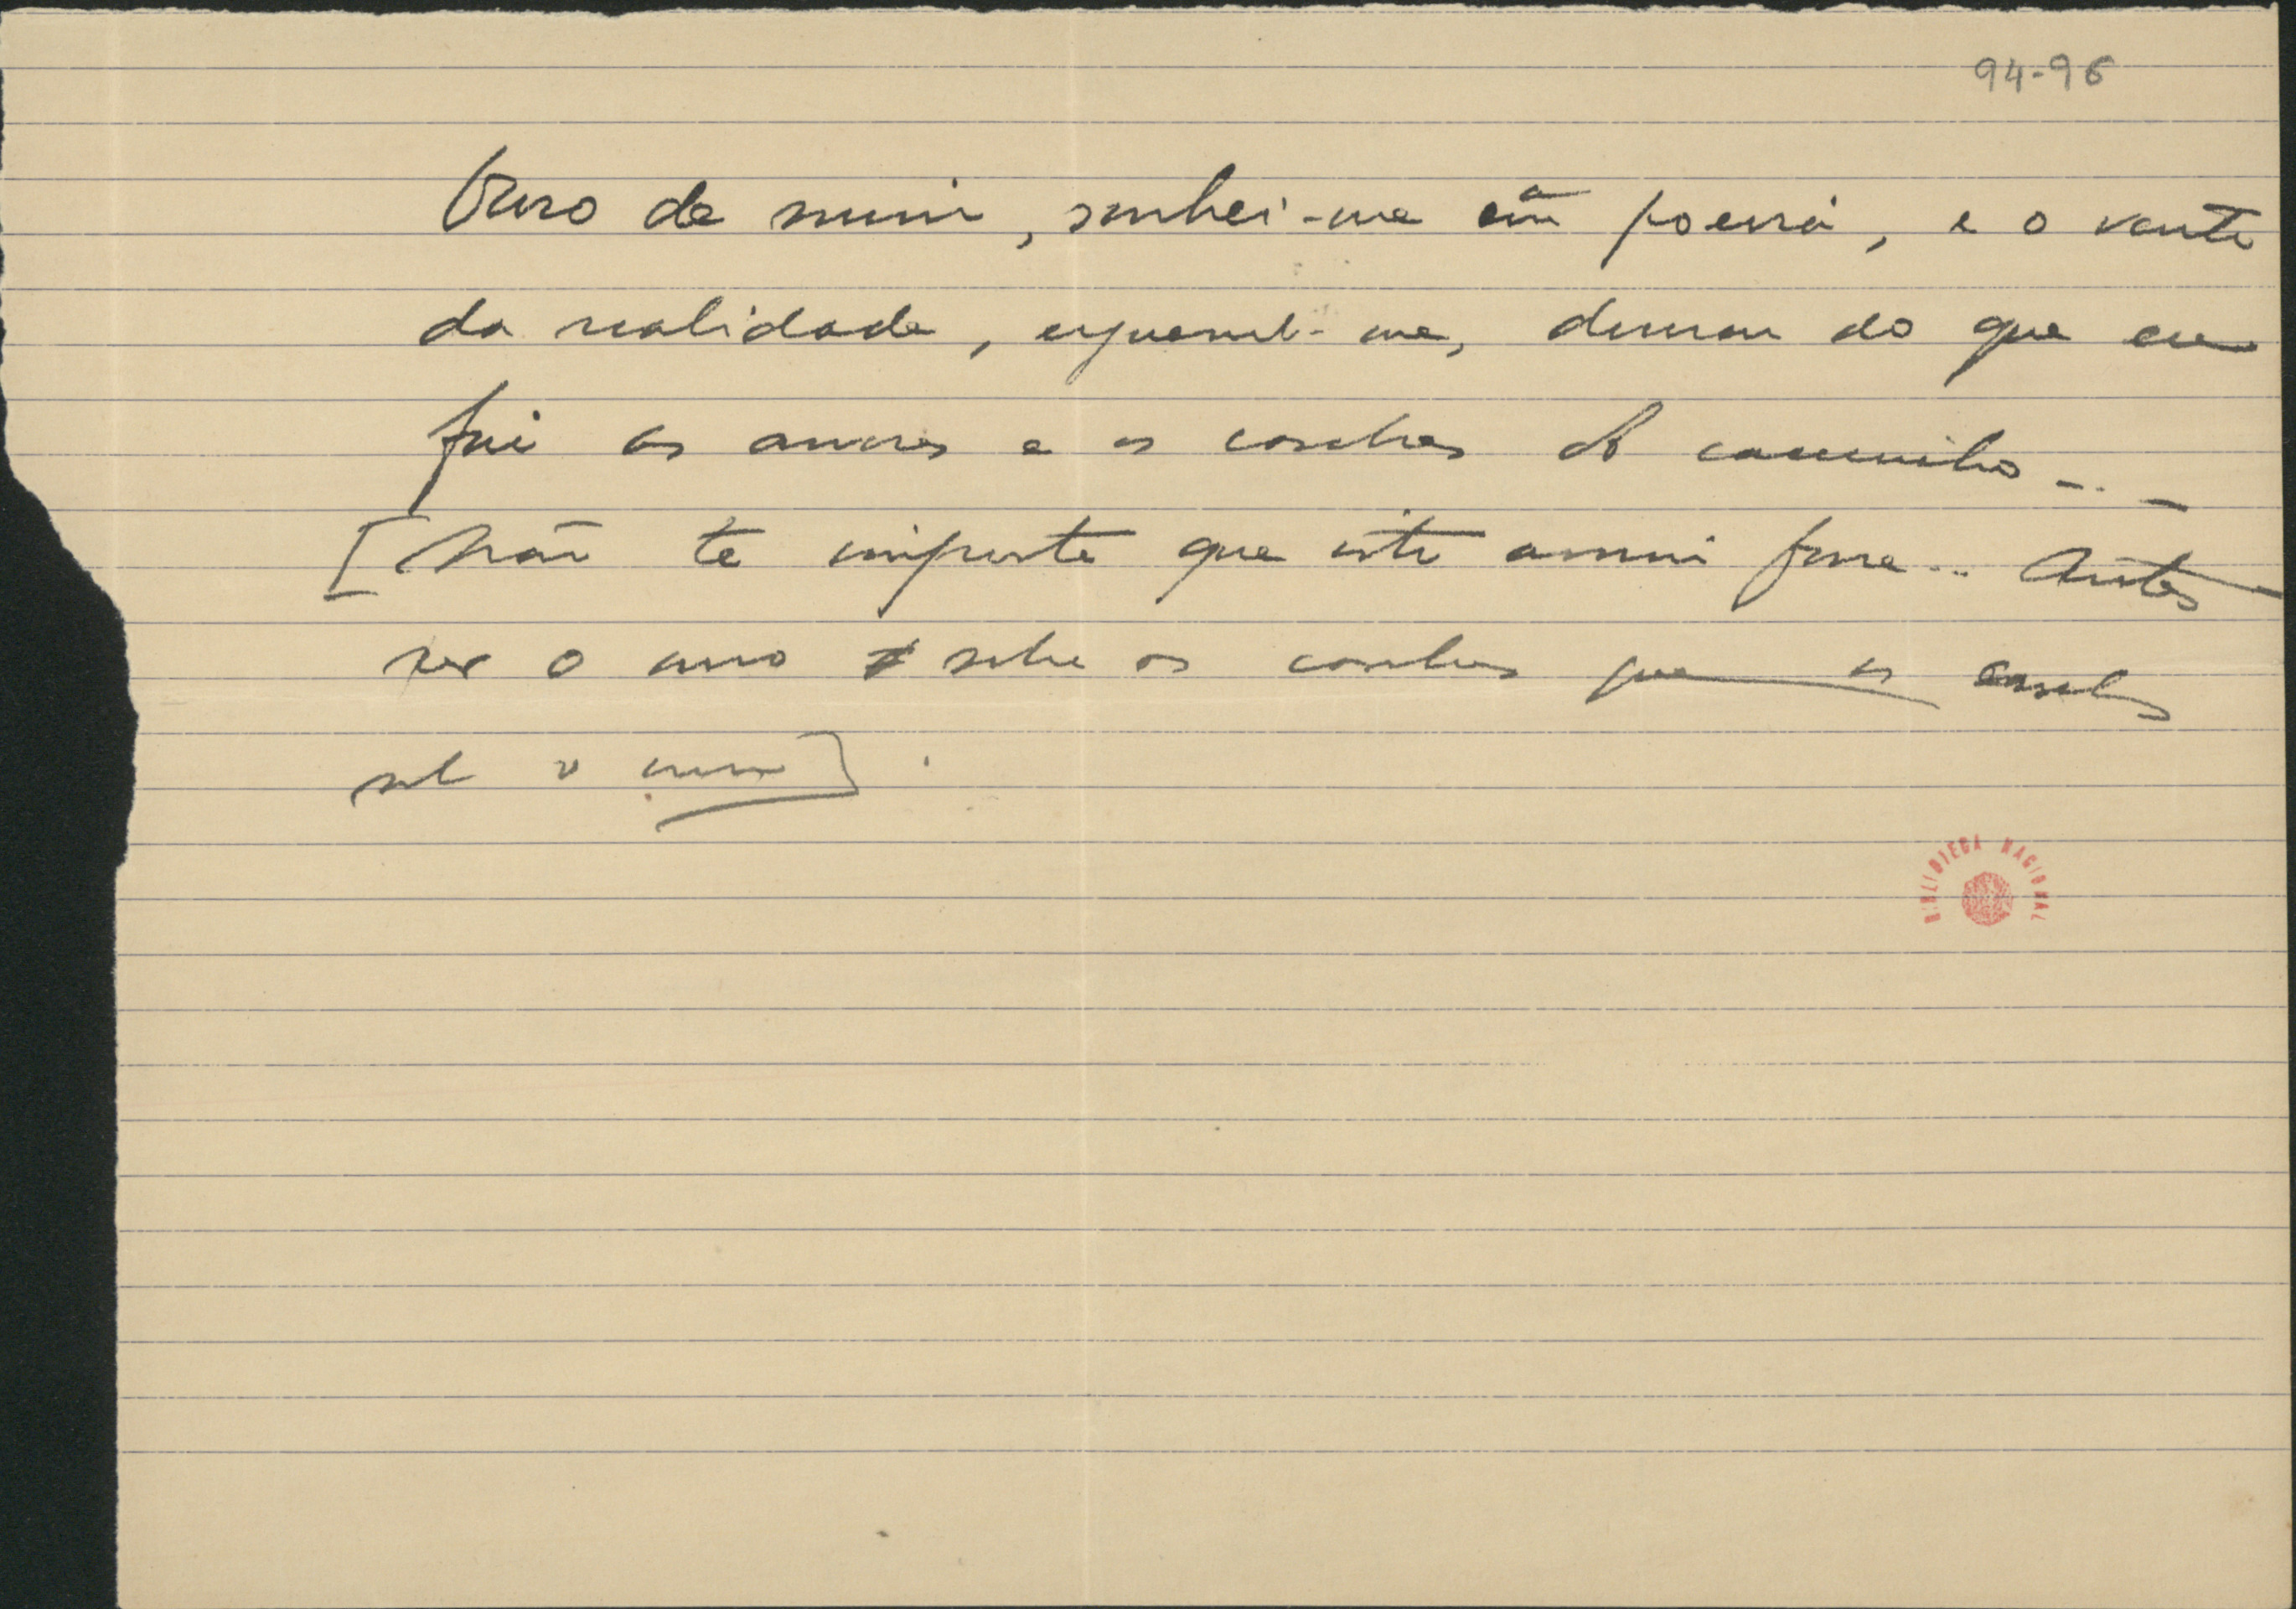 94-96
Ouro de mim, sonhei-me em poeira, e o vento
da realidade, erguendo-me, deixou do que eu
fui os ouros e os cardos do caminho...
[Não te importe que isto assim fosse... Antes
ser o ouro sobre os que os
sob o ouro].
BIBLIOTECA NACIONAL